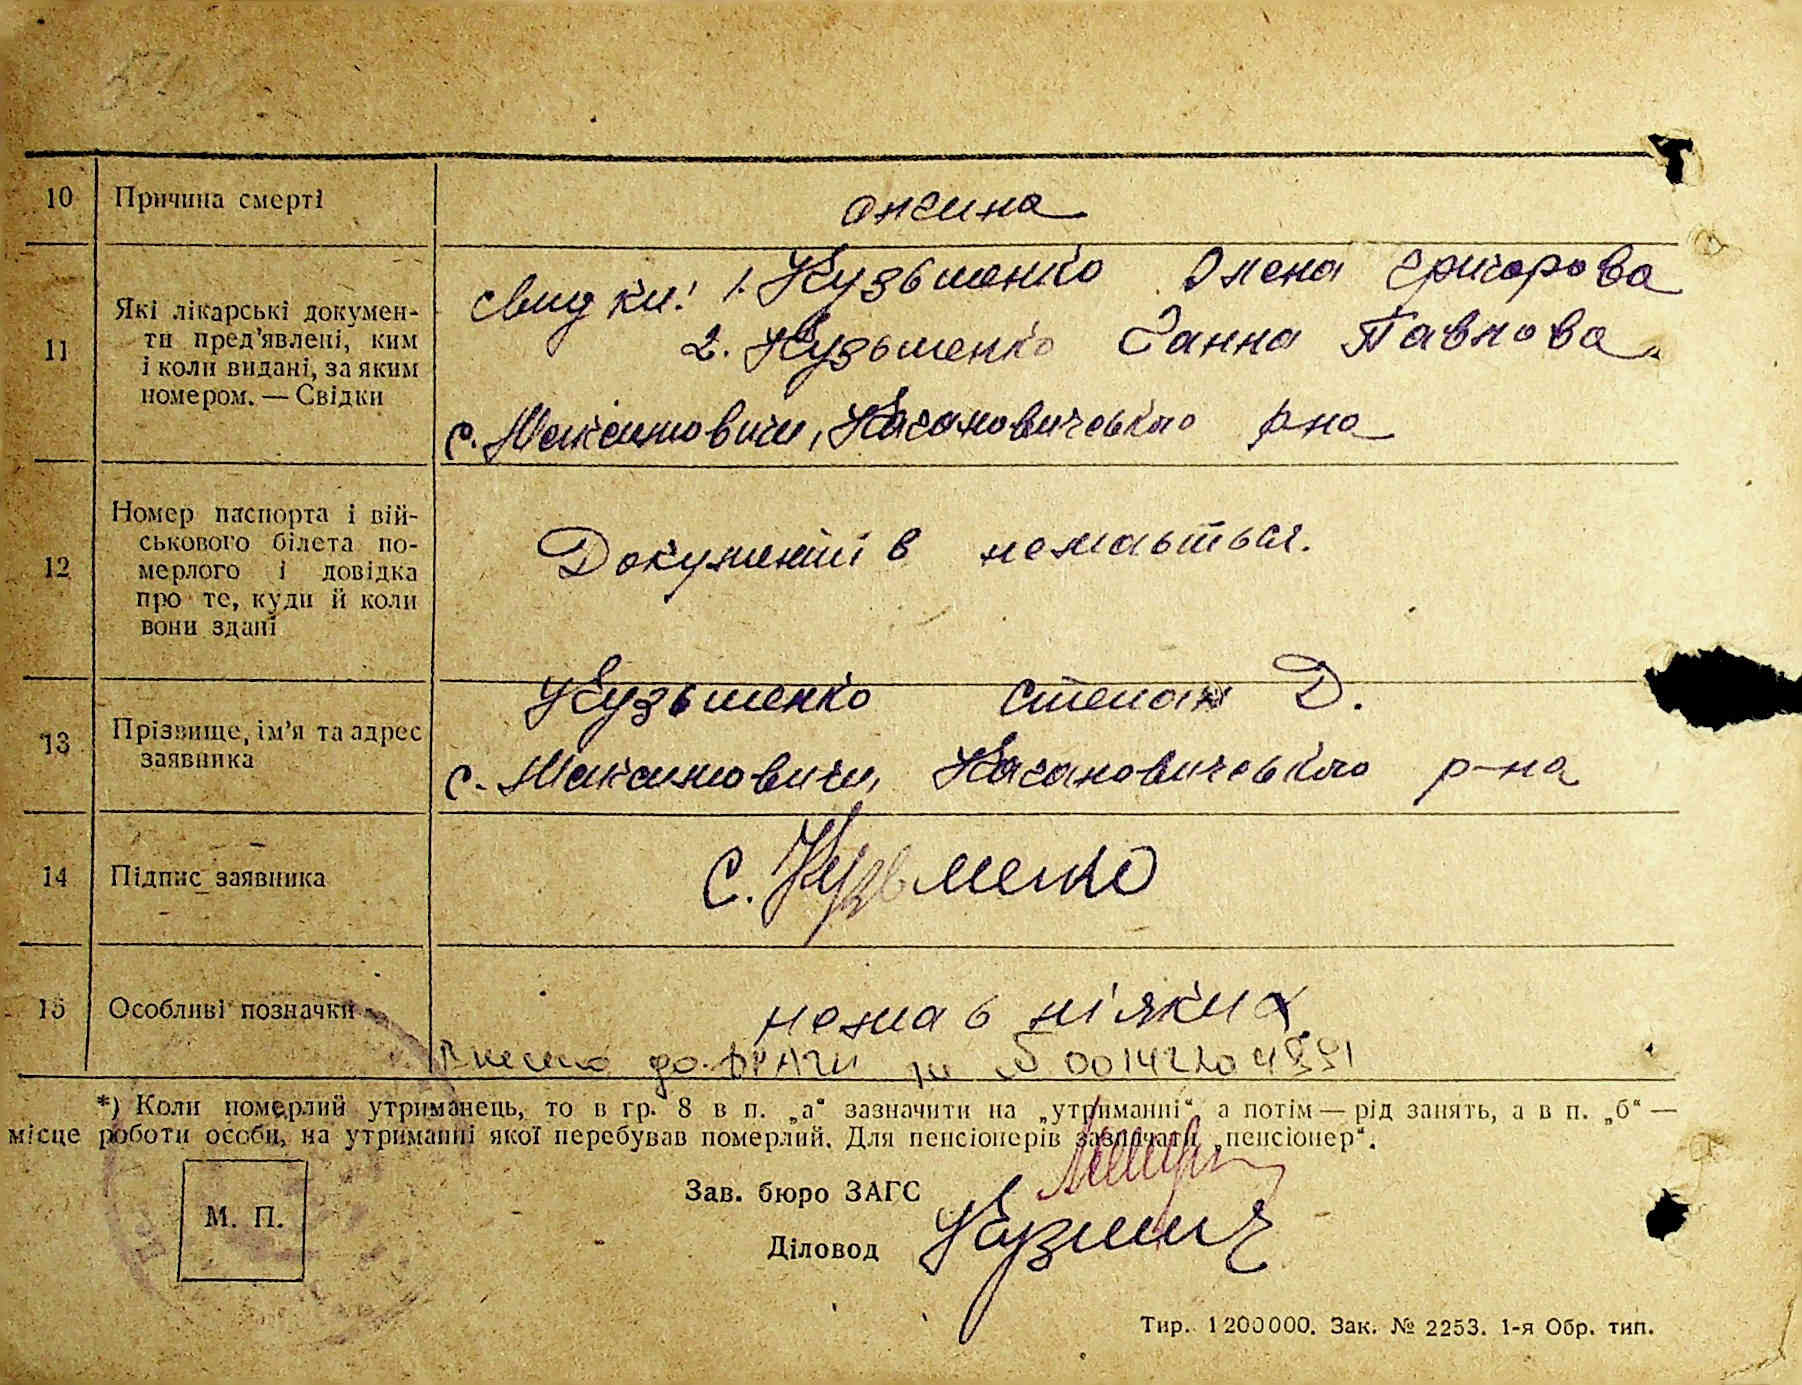 10 Причина смерті
онгина
11 Які лікарські докумен-
ти пред'явлені, ким
і коли видані, за яким
номером. — Свідки
свидки: 1. Кузьменко Олена Григорова
2. Кузьменко Ганна Павлова
с. Максимовичи, Кагановичського р-на
12 Номер паспорта і вій-
ськового білета по-
мерлого і довідка
про те, куди й коли
вони здані
Документів немається.
13 Прізвище, ім'я та адрес
заявника
Кузьменко Степан Д.
с. Максимовичи, Кагановичського р-на
14 Підпис заявника
С. Кузьменко
15 Особливі позначки
немає ніяких
Внесено до ДРАЦС за № 00142204991
*) Коли померлий утриманець, то в гр. 8 в п. „а“ зазначити на „утриманні“ а потім — рід занять, а в п. „б“ —
місце роботи особи, на утриманні якої перебував померлий. Для пенсіонерів зазначати „пенсіонер“.
Зав. бюро ЗАГС
М. П.
Діловод
Тир. 1200000. Зак. № 2253. 1-я Обр. тип.